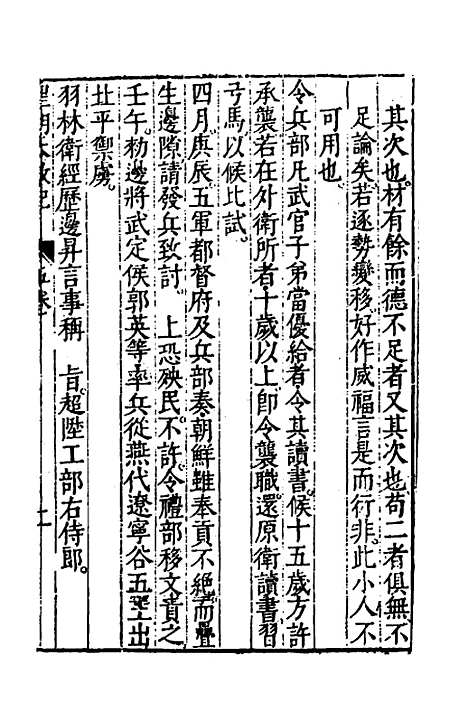 其次也。材有餘而德不足者又其次也。苟二者俱無不
足論矣。若逐勢變移。好作威福言是而行非。此小人不
可用也。
令兵部凡武官子弟當優給者。令其讀書。候十五歲方許
承襲若在外衛所者。十歲以上。即令襲職。還原衛讀書習
弓馬以候比試。
四月庚辰。五軍都督府及兵部奏。朝鮮雖奉貢不絕。而疊
生邊隙。請發兵致討。 上恐殃民不許。令禮部移文責之
壬午。勑邊將武定侯郭英等。率兵從燕代遼寧谷五
出
北平禦虜。
羽林衛經歷邊昇言事稱 旨。超陞工部右侍郎。